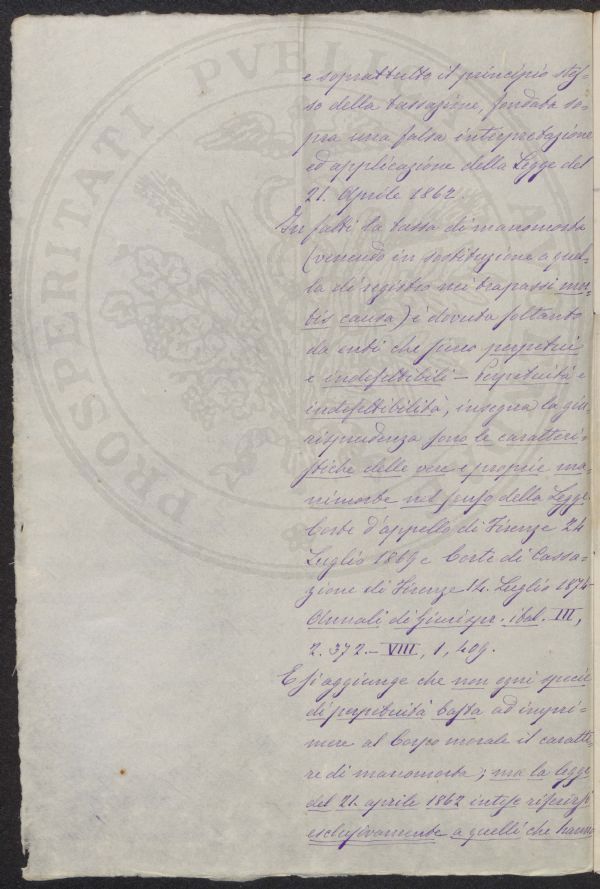 e soprattutto il principio stes-
so della tassazione, fondata so-
pra una falsa interpretazione
ed applicazione della Legge del
21. Aprile 1862.
In fatti la tassa di manomorta
(venendo in sostituzione a quel-
la di registro nei trapassi mor-
tis causa) è dovuta soltanto
da enti che sieno perpetui
e indefettibili – Perpetuità e
indefettibilità, insegna la giu-
risprudenza sono le caratteri-
stiche delle vere e proprie ma-
nimorte nel senso della Legge
Corte d'appello di Firenze 24
Luglio 1869 e Corte di Cassa-
zione di Firenze 14. Luglio 1874
Annali di Giurispr. ital. III,
2. 372. – VIII, 1, 409.
E si aggiunge che non ogni specie
di perpetuità basta ad impri-
mere al Corpo morale il caratte-
re di manomorta; ma la legge
del 21. aprile 1862 intese riferirsi
esclusivamente a quelli che hanno
PROSPERITATI PVBLICAE